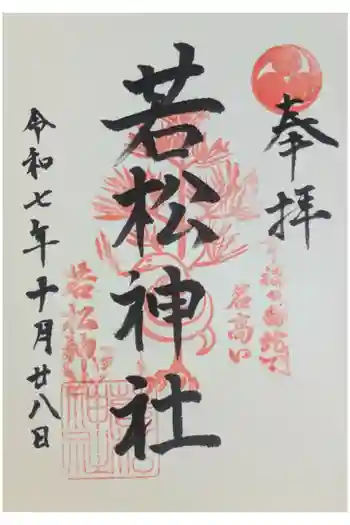 奉拝
名高い
若松神社
若松神社
若松神社
令和七年十月廿八日